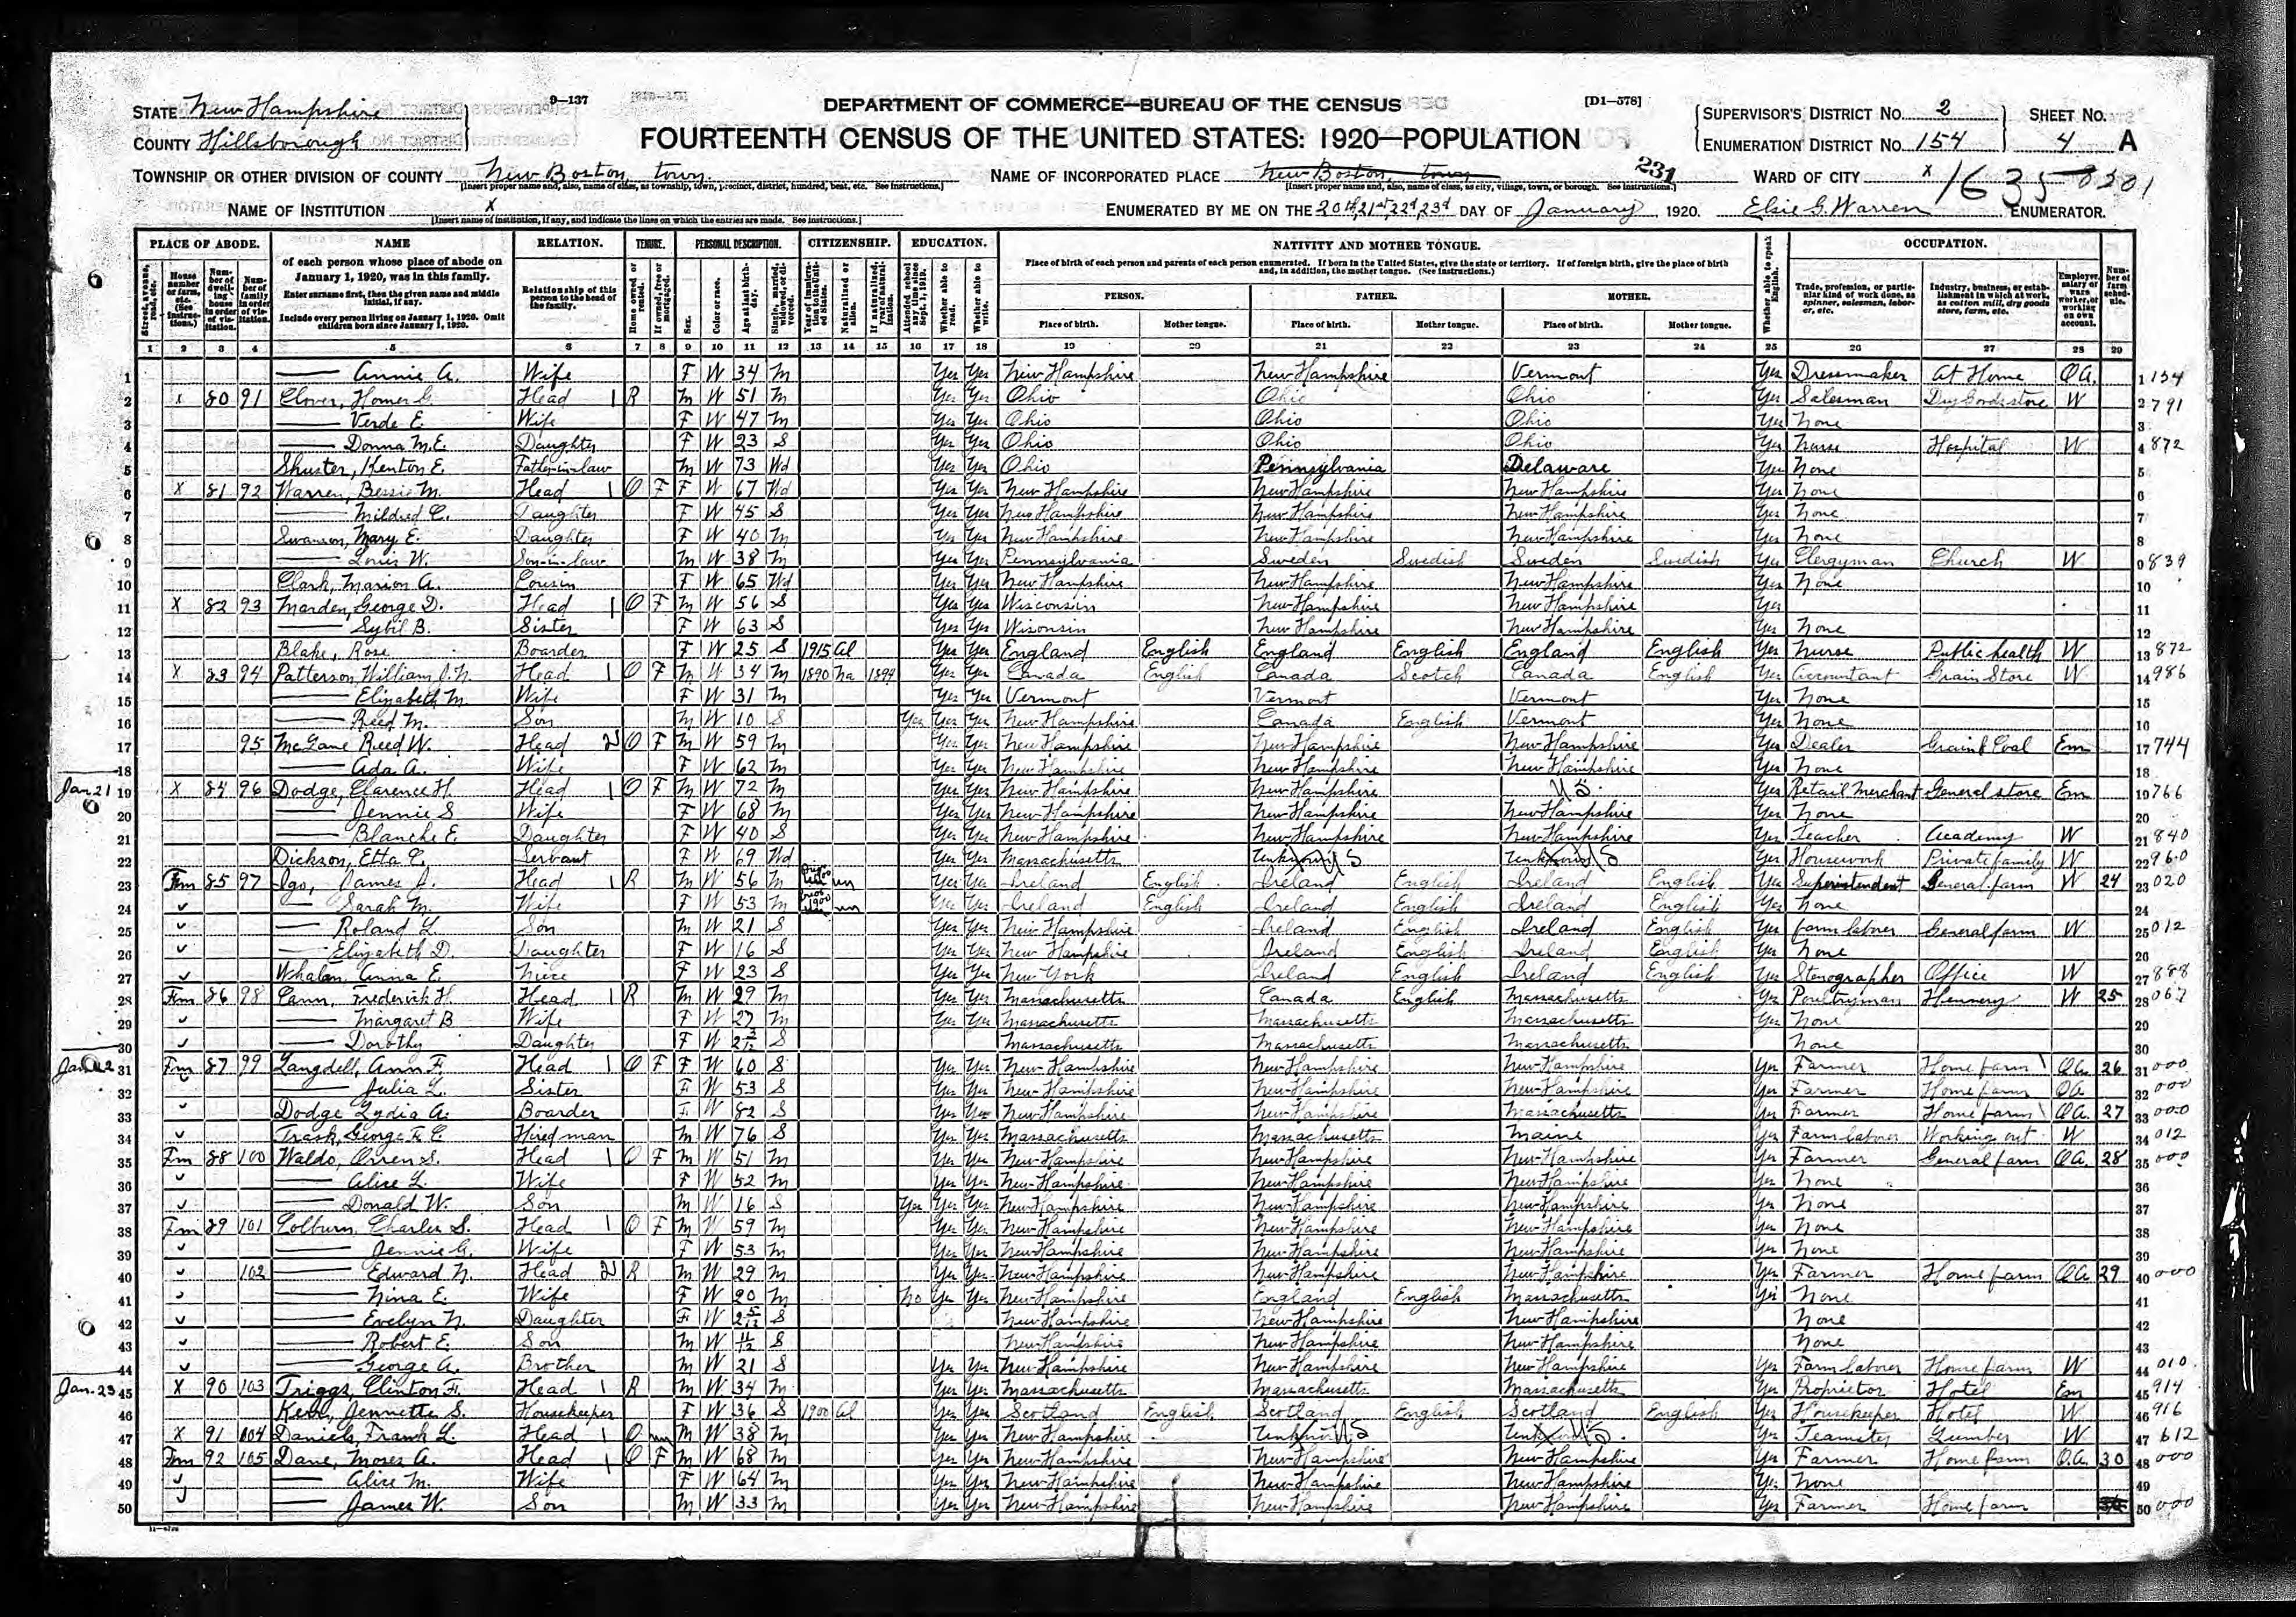 9-137
[D1-578]
STATE New Hampshire
COUNTY Hillsborough
DEPARTMENT OF COMMERCE—BUREAU OF THE CENSUS
FOURTEENTH CENSUS OF THE UNITED STATES: 1920—POPULATION
SUPERVISOR'S DISTRICT NO. 2
ENUMERATION DISTRICT NO. 154
SHEET NO. 4 A
TOWNSHIP OR OTHER DIVISION OF COUNTY New Boston town
[Insert proper name and, also, name of class, as township, town, precinct, district, hundred, beat, etc. See instructions.]
NAME OF INCORPORATED PLACE New Boston, town
[Insert proper name and, also, name of class, as city, village, town, or borough. See instructions.]
231
WARD OF CITY x
NAME OF INSTITUTION x
[Insert name of institution, if any, and indicate the lines on which the entries are made. See instructions.]
ENUMERATED BY ME ON THE 20th, 21st, 22d, 23d DAY OF January, 1920. Elsie G. Warren ENUMERATOR.
PLACE OF ABODE. NAME RELATION. TENURE. PERSONAL DESCRIPTION. CITIZENSHIP. EDUCATION. NATIVITY AND MOTHER TONGUE. OCCUPATION.
of each person whose place of abode on January 1, 1920, was in this family.
Enter surname first, then the given name and middle initial, if any.
Include every person living on January 1, 1920. Omit children born since January 1, 1920.
Relationship of this person to the head of the family.
Place of birth of each person and parents of each person enumerated. If born in the United States, give the state or territory. If of foreign birth, give the place of birth and, in addition, the mother tongue. (See instructions.)
PERSON. FATHER. MOTHER.
Place of birth. Mother tongue. Place of birth. Mother tongue. Place of birth. Mother tongue.
Whether able to speak English.
Trade, profession, or particular kind of work done, as spinner, salesman, laborer, etc.
Industry, business, or establishment in which at work, as cotton mill, dry goods store, farm, etc.
Employer, salary or wage worker, or working on own account.
Number of farm schedule.
1 2 3 4 5 6 7 8 9 10 11 12 13 14 15 16 17 18 19 20 21 22 23 24 25 26 27 28 29
1 Annie A. Wife F W 34 M Yes Yes New Hampshire New Hampshire Vermont Yes Dressmaker At Home OA. 1 154
2 x 80 91 Clover, Homer G. Head 1 R M W 51 M Yes Yes Ohio Ohio Ohio Yes Salesman Dry Goods store W 2 791
3 Verde E. Wife F W 47 M Yes Yes Ohio Ohio Ohio Yes None 3
4 Donna M.E. Daughter F W 23 S Yes Yes Ohio Ohio Ohio Yes Nurse Hospital W 4 872
5 Shuster, Kenton E. Father-in-law M W 73 Wd Yes Yes Ohio Pennsylvania Delaware Yes None 5
6 X 81 92 Warren, Bessie M. Head 1 O F F W 67 Wd Yes Yes New Hampshire New Hampshire New Hampshire Yes None 6
7 Mildred C. Daughter F W 45 S Yes Yes New Hampshire New Hampshire New Hampshire Yes None 7
8 Swanson, Mary E. Daughter F W 40 M Yes Yes New Hampshire New Hampshire New Hampshire Yes None 8
9 Louis W. Son-in-law M W 38 M Yes Yes Pennsylvania Sweden Swedish Sweden Swedish Yes Clergyman Church W 9 839
10 Clark, Marion A. Cousin F W 65 Wd Yes Yes New Hampshire New Hampshire New Hampshire Yes None 10
11 X 82 93 Marden, George D. Head 1 O F M W 56 S Yes Yes Wisconsin New Hampshire New Hampshire Yes 11
12 Sybil B. Sister F W 63 S Yes Yes Wisconsin New Hampshire New Hampshire Yes None 12
13 Blake, Rose Boarder F W 25 S 1915 Al Yes Yes England English England English England English Yes Nurse Public health W 13 872
14 X 83 94 Patterson, William J.N. Head 1 O F M W 34 M 1890 Na 1894 Yes Yes Canada English Canada Scotch Canada English Yes Accountant Grain Store W 14 986
15 Elizabeth M. Wife F W 31 M Yes Yes Vermont Vermont Vermont Yes None 15
16 Reed M. Son M W 10 S Yes Yes Yes New Hampshire Canada English Vermont Yes None 16
17 95 McLane Reed W. Head 2 O F M W 59 M Yes Yes New Hampshire New Hampshire New Hampshire Yes Dealer Grain & Coal Em 17 744
18 Ada A. Wife F W 62 M Yes Yes New Hampshire New Hampshire New Hampshire Yes None 18
Jan. 21 19 X 84 96 Dodge, Clarence H. Head 1 O F M W 72 M Yes Yes New Hampshire New Hampshire U S. Yes Retail Merchant General store Em 19 766
20 Jennie S Wife F W 68 M Yes Yes New Hampshire New Hampshire New Hampshire Yes None 20
21 Blanche E. Daughter F W 40 S Yes Yes New Hampshire New Hampshire New Hampshire Yes Teacher Academy W 21 840
22 Dickson, Etta C. Servant F W 69 Wd Yes Yes Massachusetts Unknown US Unknown US Yes Housework Private family W 22 960
23 Fm 85 97 Igo, James J. Head 1 R M W 56 M un Yes Yes Ireland English Ireland English Ireland English Yes Superintendent General farm W 24 23 020
24 Sarah M. Wife F W 53 M 1900 un Yes Yes Ireland English Ireland English Ireland English Yes None 24
25 Roland L. Son M W 21 S Yes Yes New Hampshire Ireland English Ireland English Yes farm laborer General farm W 25 012
26 Elizabeth D. Daughter F W 16 S Yes Yes New Hampshire Ireland English Ireland English Yes None 26
27 Whalen, Anna E. Niece F W 23 S Yes Yes New York Ireland English Ireland English Yes Stenographer Office W 27 888
28 Fm 86 98 Cann, Frederick H. Head 1 R M W 29 M Yes Yes Massachusetts Canada English Massachusetts Yes Poultryman Hennery W 25 28 067
29 Margaret B Wife F W 27 M Yes Yes Massachusetts Massachusetts Massachusetts Yes None 29
30 Dorothy Daughter F W S Massachusetts Massachusetts Massachusetts None 30
Jan. 22 31 Fm 87 99 Langdell, Ann F. Head 1 O F F W 60 S Yes Yes New Hampshire New Hampshire New Hampshire Yes Farmer Home farm OA. 26 31 000
32 Julia L. Sister F W 53 S Yes Yes New Hampshire New Hampshire New Hampshire Yes Farmer Home farm OA 32 000
33 Dodge Lydia A. Boarder F W 82 S Yes Yes New Hampshire New Hampshire Massachusetts Yes Farmer Home farm OA. 27 33 000
34 Trask, George F. E. Hired man M W 76 S Yes Yes Massachusetts Massachusetts Maine Yes Farm laborer Working out W 34 012
35 Fm 88 100 Waldo, Orren S. Head 1 O F M W 51 M Yes Yes New Hampshire New Hampshire New Hampshire Yes Farmer General farm OA. 28 35 000
36 Alice L. Wife F W 52 M Yes Yes New Hampshire New Hampshire New Hampshire Yes None 36
37 Donald W. Son M W 16 S Yes Yes Yes New Hampshire New Hampshire New Hampshire Yes None 37
38 Fm 89 101 Colburn, Charles S. Head 1 O F M W 59 M Yes Yes New Hampshire New Hampshire New Hampshire Yes None 38
39 Jennie G. Wife F W 53 M Yes Yes New Hampshire New Hampshire New Hampshire Yes None 39
40 102 Edward N. Head 2 R M W 29 M Yes Yes New Hampshire New Hampshire New Hampshire Yes Farmer Home farm OA 29 40 000
41 Nina E. Wife F W 20 M No Yes Yes New Hampshire England English Massachusetts Yes None 41
42 Evelyn N. Daughter F W 2 5/12 S New Hampshire New Hampshire New Hampshire None 42
43 Robert E. Son M W 11/12 S New Hampshire New Hampshire New Hampshire None 43
44 George A. Brother M W 21 S Yes Yes New Hampshire New Hampshire New Hampshire Yes Farm laborer Home farm W 44 010
Jan. 23 45 X 90 103 Triggs, Clinton F. Head 1 R M W 34 M Yes Yes Massachusetts Massachusetts Massachusetts Yes Proprietor Hotel Em 45 914
46 Kerr, Jennette S. Housekeeper F W 36 S 1900 Al Yes Yes Scotland English Scotland English Scotland English Yes Housekeeper Hotel W 46 916
47 X 91 104 Daniels, Frank L. Head 1 O M W 38 M Yes Yes New Hampshire Unknown US Unknown US Yes Teamster Lumber W 47 612
48 Fm 92 105 Dane, Moses A. Head 1 O F M W 68 M Yes Yes New Hampshire New Hampshire New Hampshire Yes Farmer Home farm O.A. 30 48 000
49 Alice M. Wife F W 64 M Yes Yes New Hampshire New Hampshire New Hampshire Yes None 49
50 James W. Son M W 33 M Yes Yes New Hampshire New Hampshire New Hampshire Yes Farmer Home farm 50 000